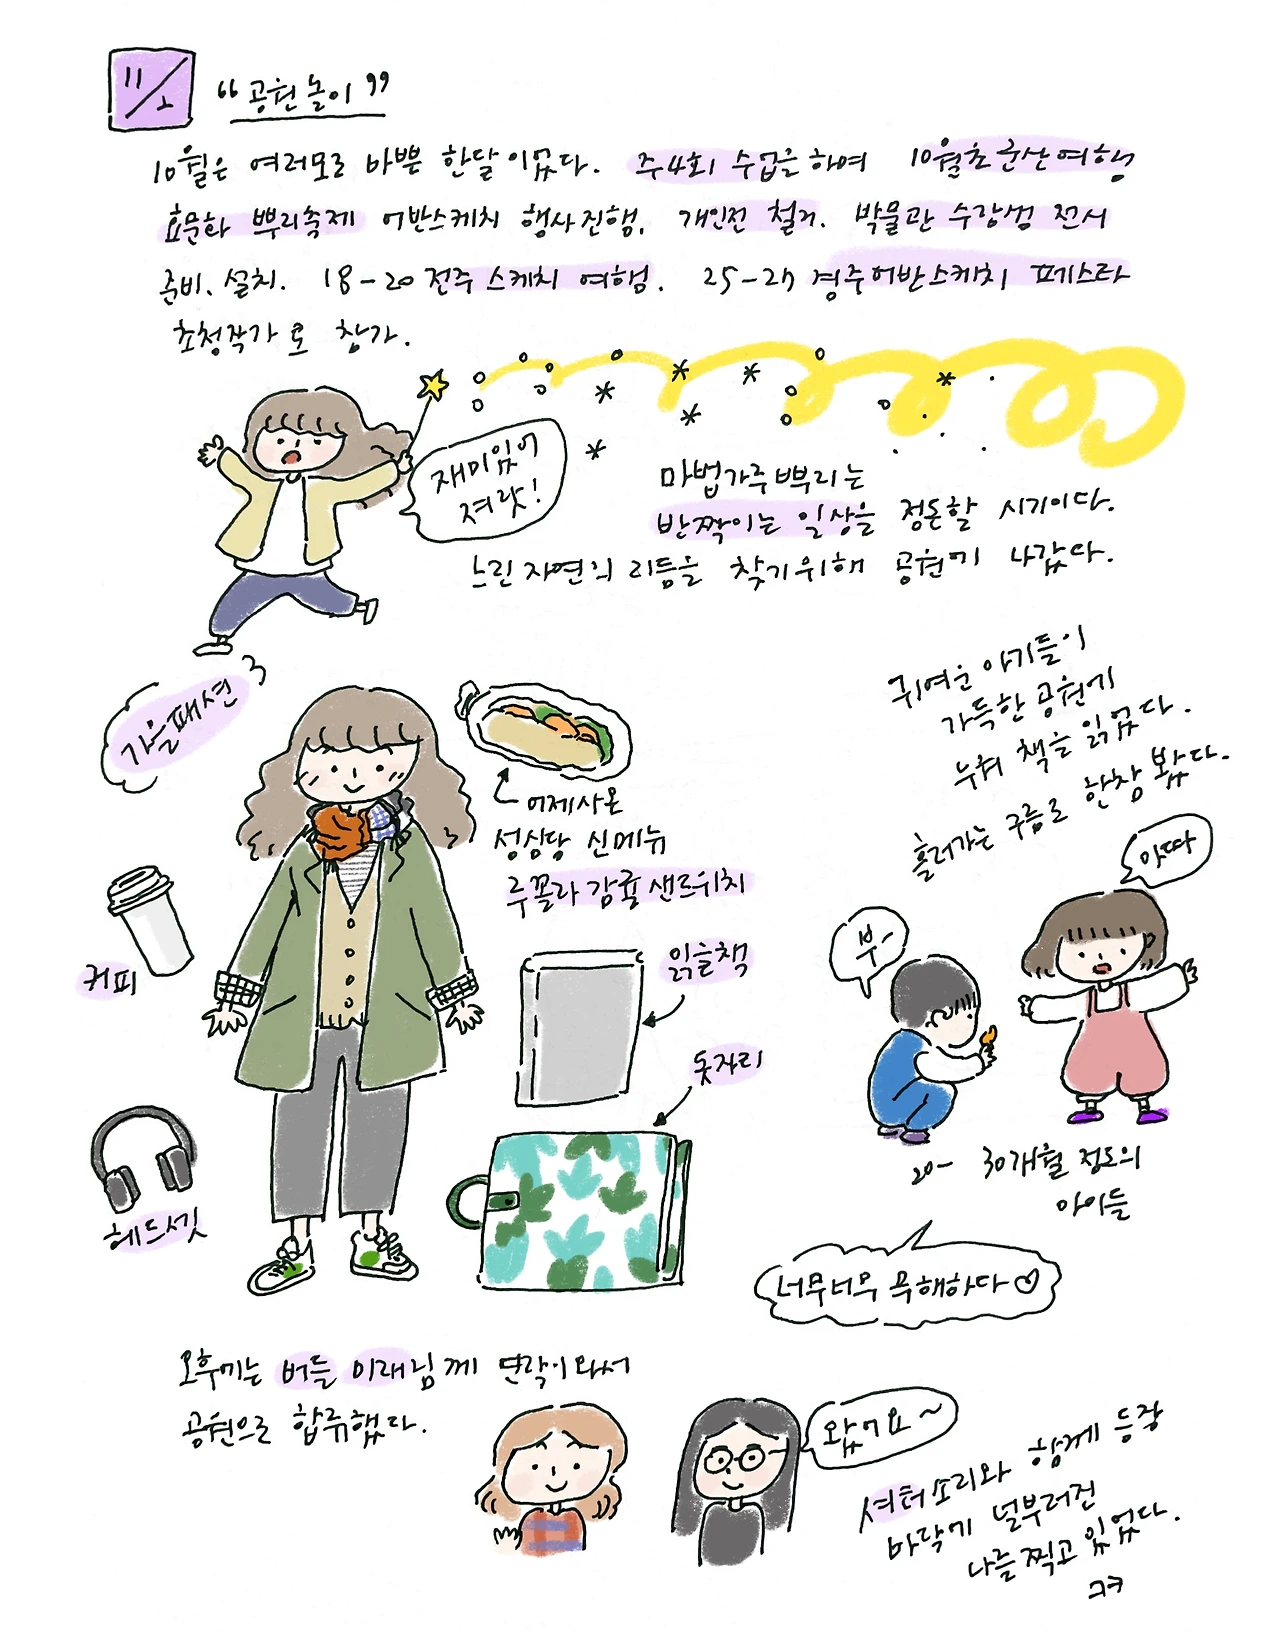 11/1
“공원놀이”
10월은 여러모로 바쁜 한달이었다. 주4회 수업을하며 10월초 군산여행
효문화 뿌리축제 어반스케치 행사진행. 개인전 철거. 박물관 수강생 전시
준비. 설치. 18-20 전주스케치 여행. 25-27 경주어반스케치 페스타
초청작가로 참가.
재미있어
져랏!
마법가루 뿌리는
반짝이는 일상을 정돈할 시기이다.
느린 자연의 리듬을 찾기위해 공원에 나갔다.
가을패션
어제사온
성심당 신메뉴
루꼴라 감귤 샌드위치
귀여운 아기들이
가득한 공원에
누워 책을 읽었다.
흘러가는 구름도 한참 봤다.
커피
읽을책
돗자리
헤드셋
부-
앗따
20- 30개월 정도의
아이들
너무너무 무해하다♡
오후에는 버들 이래님께 연락이와서
공원으로 합류했다.
왔어요~
셔터소리와 함께 등장
바닥에 널부러진
나를 찍고 있었다.
ㅋㅋ